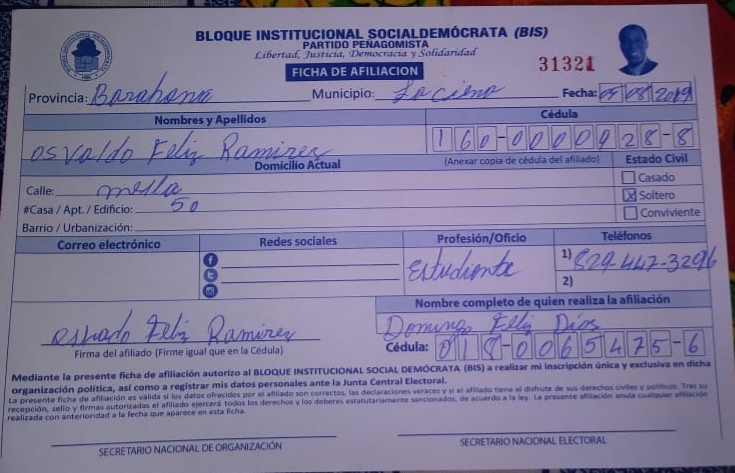 BLOQUE INSTITUCIONAL SOCIALDEMÓCRATA (BIS)
PARTIDO PEÑAGOMISTA
Libertad, Justicia, Democracia y Solidaridad
FICHA DE AFILIACION
31321
Provincia: Barahona Municipio: La ciena Fecha: 05 08 2019
Nombres y Apellidos Cédula
osvaldo Feliz Ramirez 160-0000928-8
Domicilio Actual (Anexar copia de cédula del afiliado) Estado Civil
Calle: mella Casado
#Casa / Apt. / Edificio: 50 Soltero
Barrio / Urbanización: Conviviente
Correo electrónico Redes sociales Profesión/Oficio Teléfonos
Estudiante 1) 829-447-3296
2)
Nombre completo de quien realiza la afiliación
osvado Feliz Ramirez Domingo Feliz Dios
Firma del afiliado (Firme igual que en la Cédula) Cédula: 018-0065475-6
Mediante la presente ficha de afiliación autorizo al BLOQUE INSTITUCIONAL SOCIAL DEMÓCRATA (BIS) a realizar mi inscripción única y exclusiva en dicha
organización política, así como a registrar mis datos personales ante la Junta Central Electoral.
La presente ficha de afiliación es válida si los datos ofrecidos por el afiliado son correctos, las declaraciones veraces y si el afiliado tiene el disfrute de sus derechos civiles y políticos. Tras su
recepción, sello y firmas autorizadas el afiliado ejercerá todos los derechos y los deberes estatutariamente sancionados, de acuerdo a la ley. La presente afiliación anula cualquier afiliación
realizada con anterioridad a la fecha que aparece en esta ficha.
SECRETARIO NACIONAL DE ORGANIZACIÓN SECRETARIO NACIONAL ELECTORAL